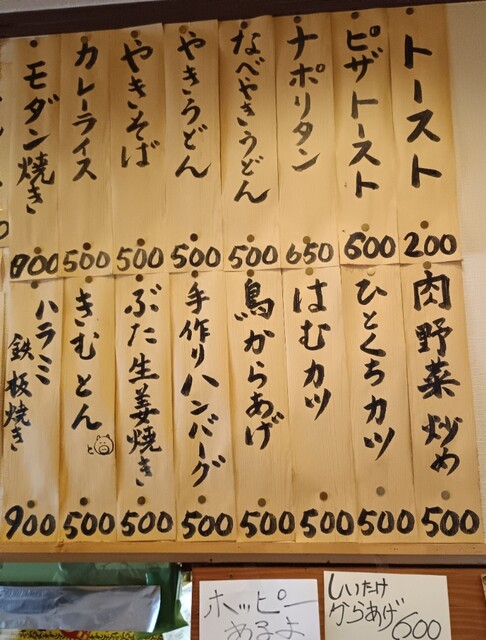 トースト
200
ピザトースト
600
ナポリタン
650
なべやきうどん
500
やきうどん
500
やきそば
500
カレーライス
500
モダン焼き
800
肉野菜炒め
500
ひとくちカツ
500
はむカツ
500
鳥からあげ
500
手作りハンバーグ
500
ぶた生姜焼き
500
きむとん
と
500
ハラミ
鉄板焼き
900
ホッピー
あるよ
しいたけ
からあげ600